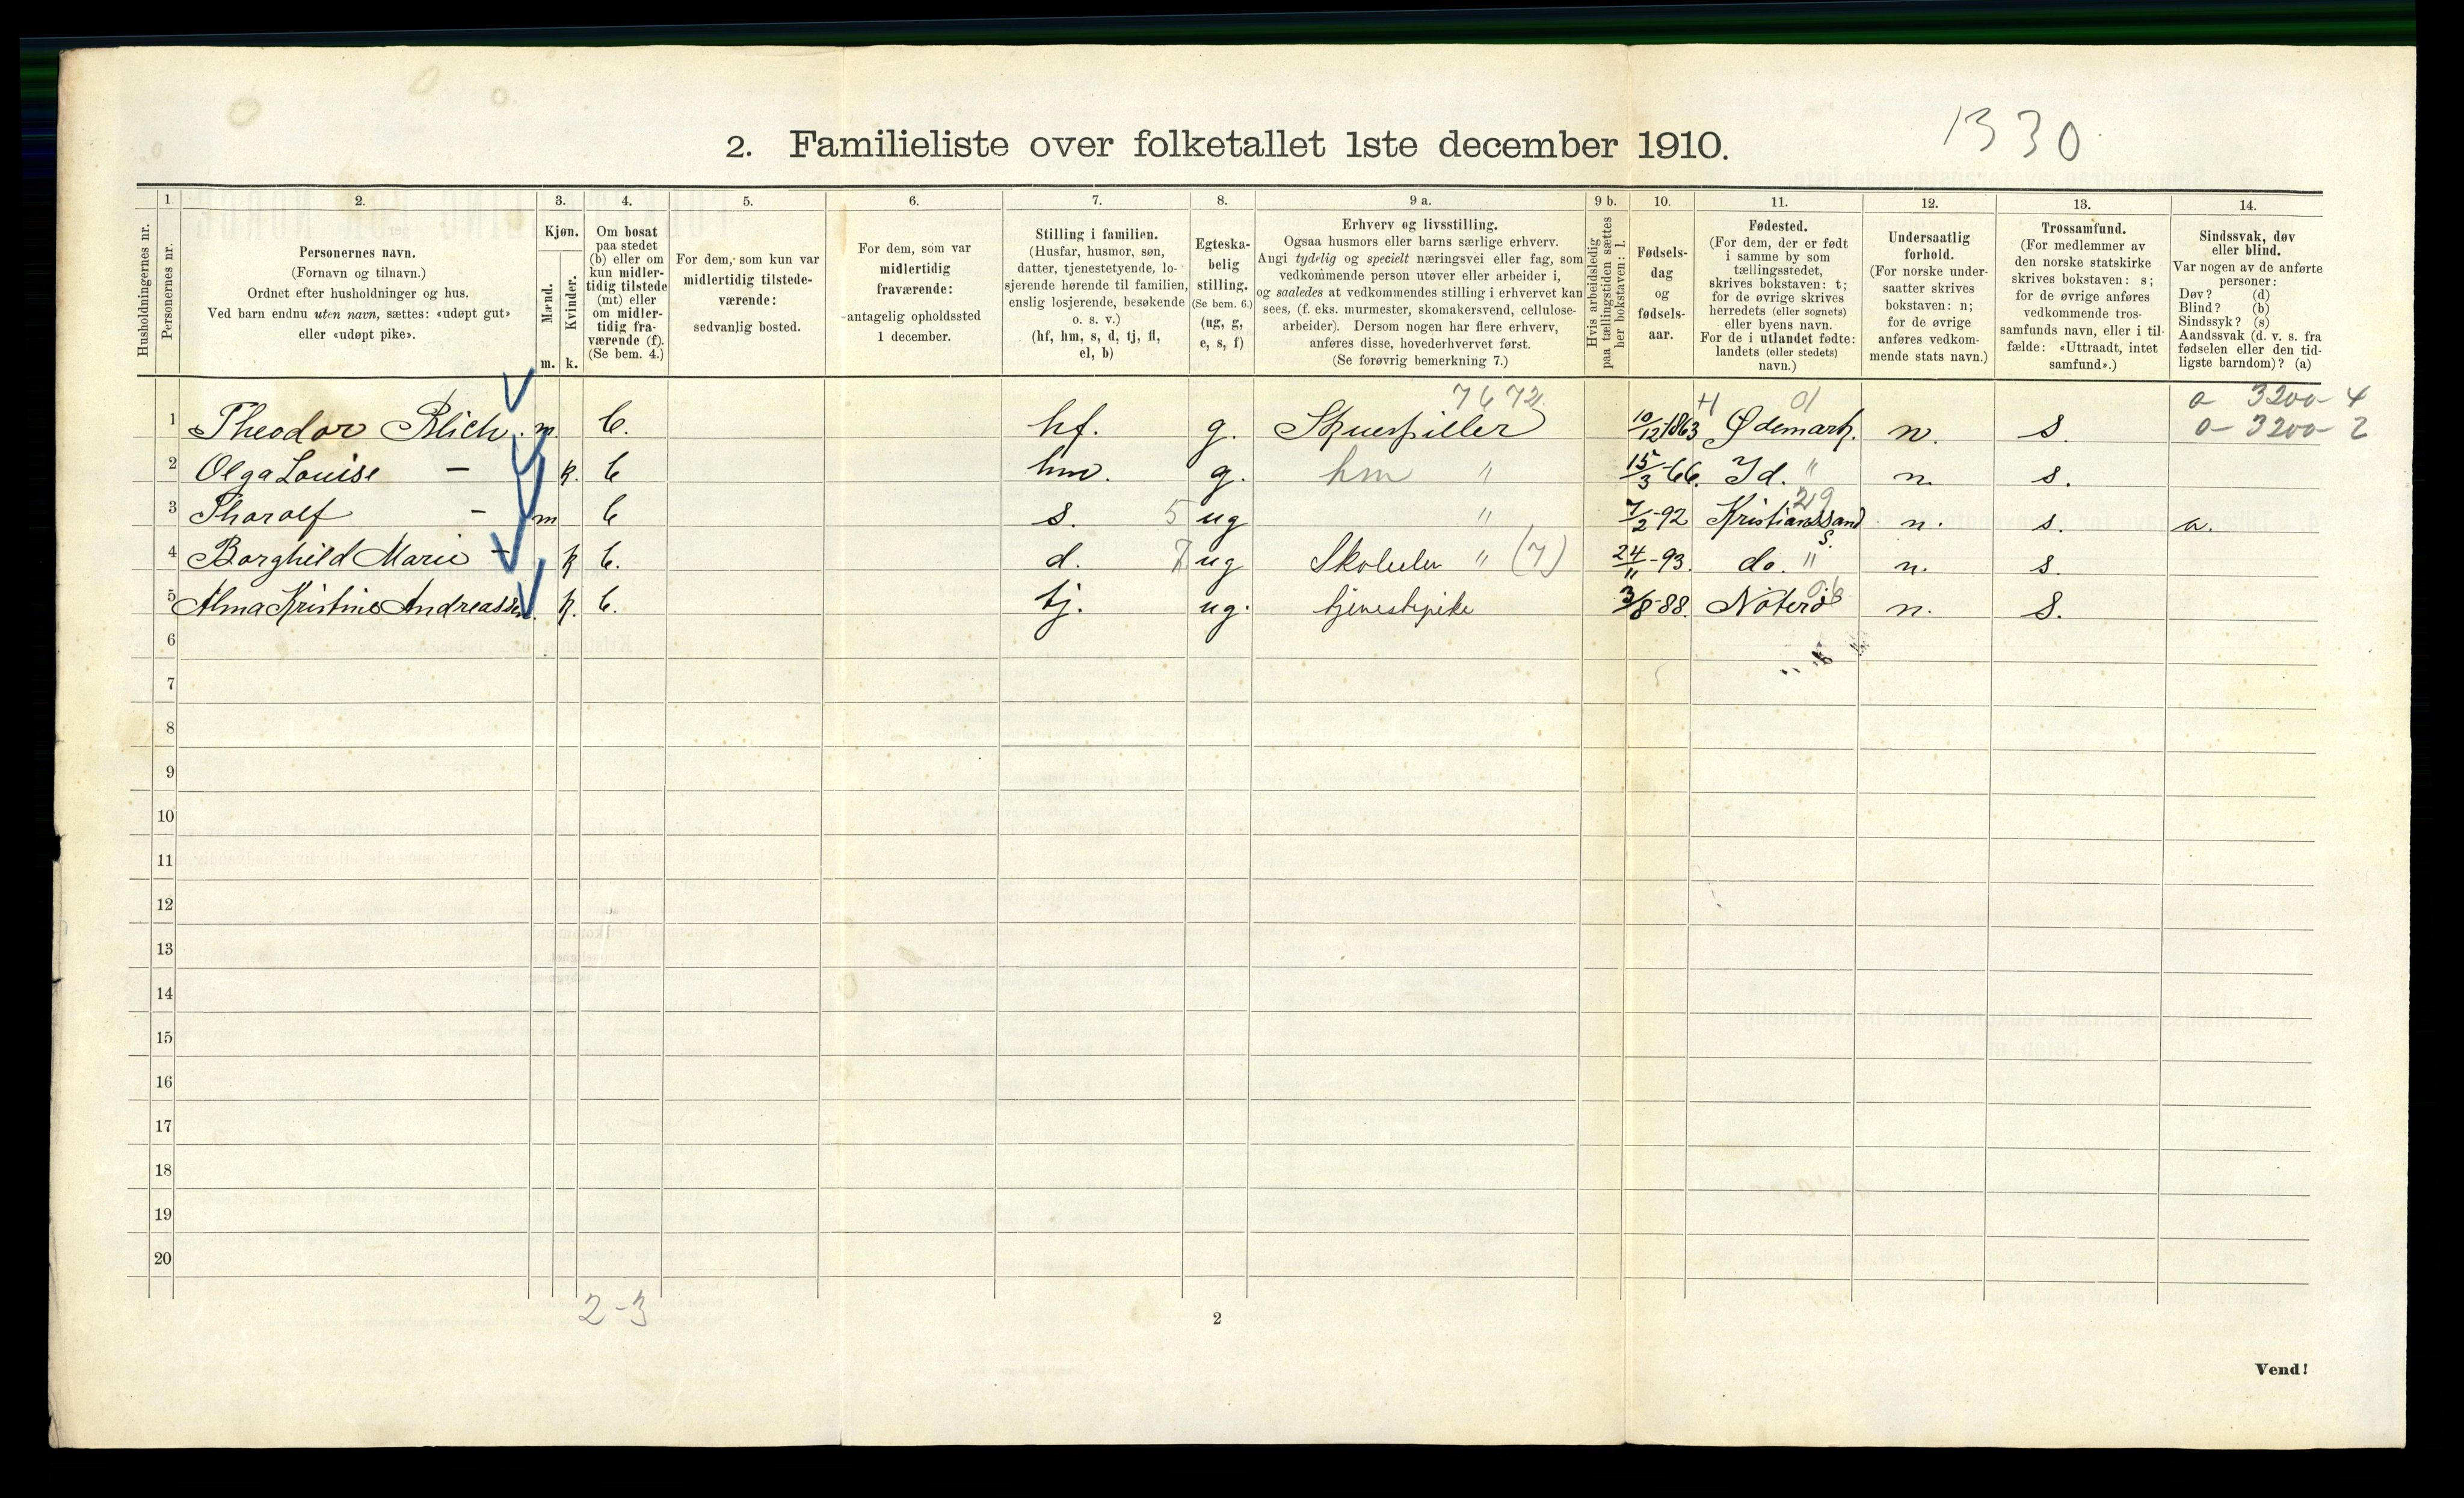 2. Familieliste over folketallet 1ste december 1910.
1330
Husholdningernes nr.
1
Personernes nr.
2.
Personernes navn.
(Fornavn og tilnavn.)
Ordnet efter husholdninger og hus.
Ved barn endnu uten navn, sættes: «udøpt gut»
eller «udøpt pike».
3.
Kjøn.
Mænd.
Kvinder.
m. k.
4.
Om bosat
paa stedet
(b) eller om
kun midler-
tidig tilstede
(mt) eller
om midler-
tidig fra-
værende (f).
(Se bem. 4.)
5.
For dem, som kun var
midlertidig tilstede-
værende:
sedvanlig bosted.
6.
For dem, som var
midlertidig
fraværende:
antagelig opholdssted
1 december.
7.
Stilling i familien.
(Husfar, husmor, søn,
datter, tjenestetyende, lo-
sjerende hørende til familien,
enslig losjerende, besøkende
o. s. v.)
(hf, hm, s, d, tj, fl,
el, b)
8.
Egteska-
belig
stilling.
(Se bem. 6.)
(ug, g,
e, s, f)
9 a.
Erhverv og livsstilling.
Ogsaa husmors eller barns særlige erhverv.
Angi tydelig og specielt næringsvei eller fag, som
vedkommende person utøver eller arbeider i,
og saaledes at vedkommendes stilling i erhvervet kan
sees, (f. eks. murmester, skomakersvend, cellulose-
arbeider). Dersom nogen har flere erhverv,
anføres disse, hovederhvervet først.
(Se forøvrig bemerkning 7.)
9 b.
Hvis arbeidsledig
paa tællingstiden sættes
her bokstaven: l.
10.
Fødsels-
dag
og
fødsels-
aar.
11.
Fødested.
(For dem, der er født
i samme by som
tællingsstedet,
skrives bokstaven: t;
for de øvrige skrives
herredets (eller sognets)
eller byens navn.
For de i utlandet fødte:
landets (eller stedets)
navn.)
12.
Undersaatlig
forhold.
(For norske under-
saatter skrives
bokstaven: n;
for de øvrige
anføres vedkom-
mende stats navn.)
13.
Trossamfund.
(For medlemmer av
den norske statskirke
skrives bokstaven: s;
for de øvrige anføres
vedkommende tros-
samfunds navn, eller i til-
fælde: «Uttraadt, intet
samfund».)
14.
Sindssvak, døv
eller blind.
Var nogen av de anførte
personer:
Døv? (d)
Blind? (b)
Sindssyk? (s)
Aandssvak (d. v. s. fra
fødselen eller den tid-
ligste barndom)? (a)
7672. 01 0 - 3200 - 4
1 Theodor Blich. m. b. hf. g. Skuespiller 10/12 1863 Ødemark. n. s. 0 - 3200 - 2
2 Olga Louise - k. b hm. g. hm " 15/3-66. Id. " n. s.
29
3 Tharalf - m b s. 5 ug " 7/2-92 Kristianssand S. n. s. a.
4 Borghild Marie - k b. d. 7 ug Skoleelev " (7) 24/11-93. do. " n. s.
5 Alma Kristine Andreassen. k. b. tj. ug. tjenestepike 3/8-88. Nöterö 06 n. S.
6
7
8
9
10
11
12
13
14
15
16
17
18
19
20
2-3
2
Vend!